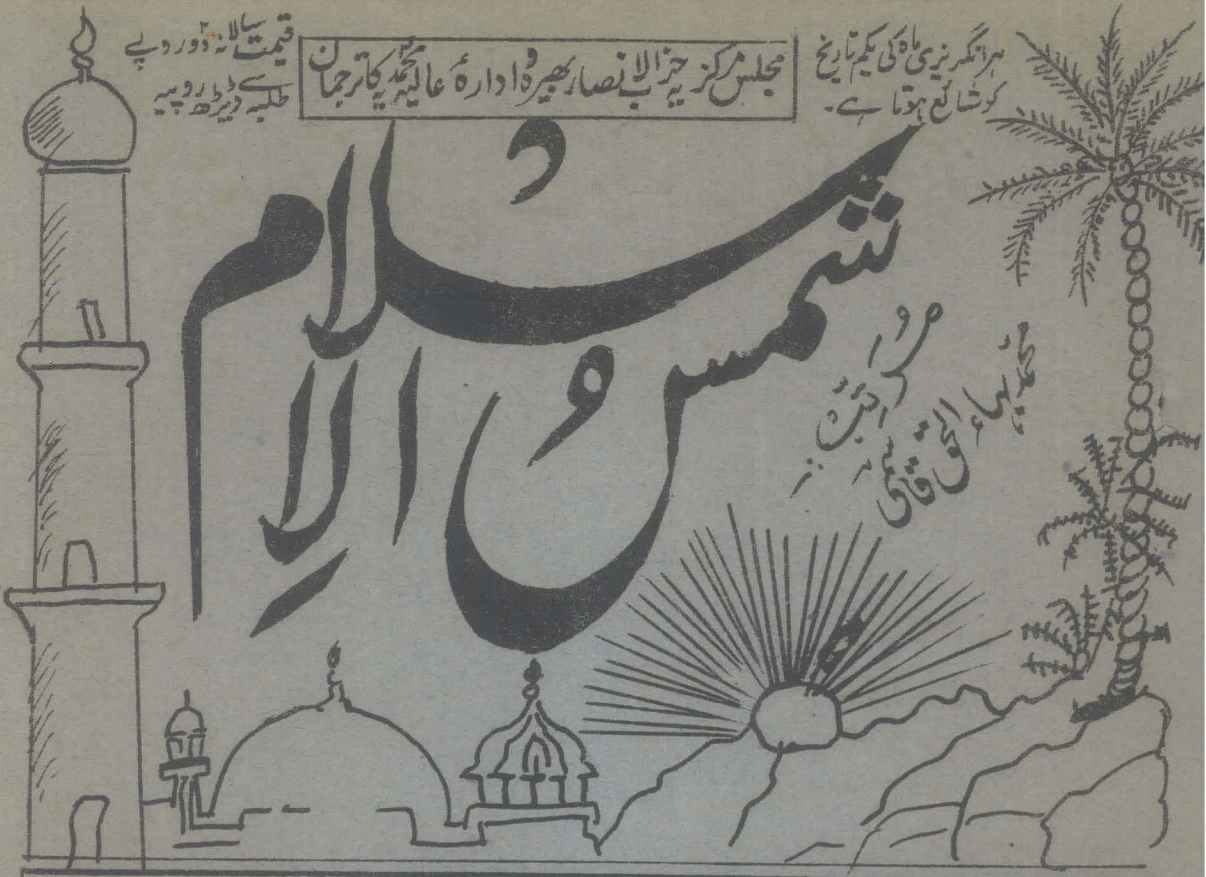 ہر انگریزی ماہ کی یکم تاریخ
کو شائع ہوتا ہے۔
مجلس مرکزیہ حزب الانصار بھیرہ و ادارۂ عالیہ محمدیہ کا ترجمان
قیمت سالانہ دو روپے
طلبہ سے ڈیڑھ روپیہ
شمس الاسلام
محمد بہاء الحق قاسمی